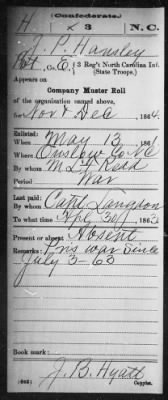 (Confederate.)
H 3 N.C.
J. P. Hansley
Pvt, Co. E, 3 Reg't North Carolina Inf.
(State Troops.)
Appears on
Company Muster Roll
of the organization named above,
for Nov & Dec, 1864.
Enlisted:
When May 13, 1861
Where Onslow Co NC
By whom M. L. F. Redd
Period War
Last paid:
By whom Capt Langdon
To what time Apl 30, 1863
Present or absent Absent
Remarks: Pris war since
July 3-63
Book mark:
J. B. Hyatt
(642) Copyist.